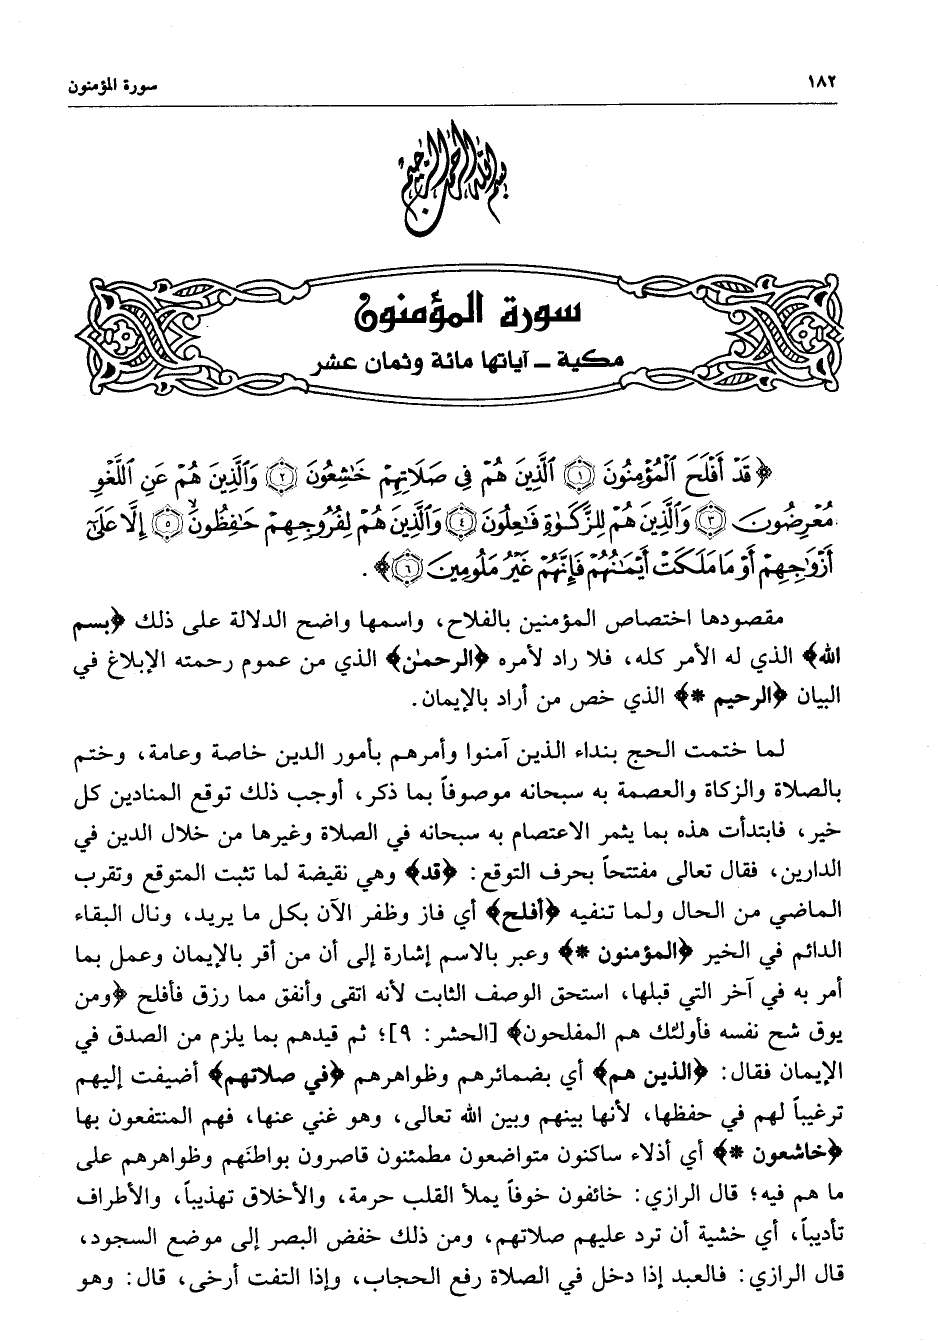 ١٨٢ سورة المؤمنون
بسم الله الرحمن الرحيم
سورة المؤمنون
مكية ـ آياتها مائة وثمان عشر
﴿قَدْ أَفْلَحَ الْمُؤْمِنُونَ ۝١ الَّذِينَ هُمْ فِي صَلَاتِهِمْ خَٰشِعُونَ ۝٢ وَالَّذِينَ هُمْ عَنِ اللَّغْوِ
مُعْرِضُونَ ۝٣ وَالَّذِينَ هُمْ لِلزَّكَوٰةِ فَٰعِلُونَ ۝٤ وَالَّذِينَ هُمْ لِفُرُوجِهِمْ حَٰفِظُونَ ۝٥ إِلَّا عَلَىٰٓ
أَزْوَٰجِهِمْ أَوْ مَا مَلَكَتْ أَيْمَٰنُهُمْ فَإِنَّهُمْ غَيْرُ مَلُومِينَ ۝٦﴾.
مقصودها اختصاص المؤمنين بالفلاح، واسمها واضح الدلالة على ذلك ﴿بسم
الله﴾ الذي له الأمر كله، فلا راد لأمره ﴿الرحمٰن﴾ الذي من عموم رحمته الإبلاغ في
البيان ﴿الرحيم *﴾ الذي خص من أراد بالإيمان.
لما ختمت الحج بنداء الذين آمنوا وأمرهم بأمور الدين خاصة وعامة، وختم
بالصلاة والزكاة والعصمة به سبحانه موصوفاً بما ذكر، أوجب ذلك توقع المنادين كل
خير، فابتدأت هذه بما يثمر الاعتصام به سبحانه في الصلاة وغيرها من خلال الدين في
الدارين، فقال تعالى مفتتحاً بحرف التوقع: ﴿قد﴾ وهي نقيضة لما تثبت المتوقع وتقرب
الماضي من الحال ولما تنفيه ﴿أفلح﴾ أي فاز وظفر الآن بكل ما يريد، ونال البقاء
الدائم في الخير ﴿المؤمنون *﴾ وعبر بالاسم إشارة إلى أن من أقر بالإيمان وعمل بما
أمر به في آخر التي قبلها، استحق الوصف الثابت لأنه اتقى وأنفق مما رزق فأفلح ﴿ومن
يوق شح نفسه فأولئك هم المفلحون﴾ [الحشر: ٩]؛ ثم قيدهم بما يلزم من الصدق في
الإيمان فقال: ﴿الذين هم﴾ أي بضمائرهم وظواهرهم ﴿في صلاتهم﴾ أضيفت إليهم
ترغيباً لهم في حفظها، لأنها بينهم وبين الله تعالى، وهو غني عنها، فهم المنتفعون بها
﴿خاشعون *﴾ أي أذلاء ساكنون متواضعون مطمئنون قاصرون بواطنَهم وظواهرهم على
ما هم فيه؛ قال الرازي: خائفون خوفاً يملأ القلب حرمة، والأخلاق تهذيباً، والأطراف
تأديباً، أي خشية أن ترد عليهم صلاتهم، ومن ذلك خفض البصر إلى موضع السجود،
قال الرازي: فالعبد إذا دخل في الصلاة رفع الحجاب، وإذا التفت أرخى، قال: وهو